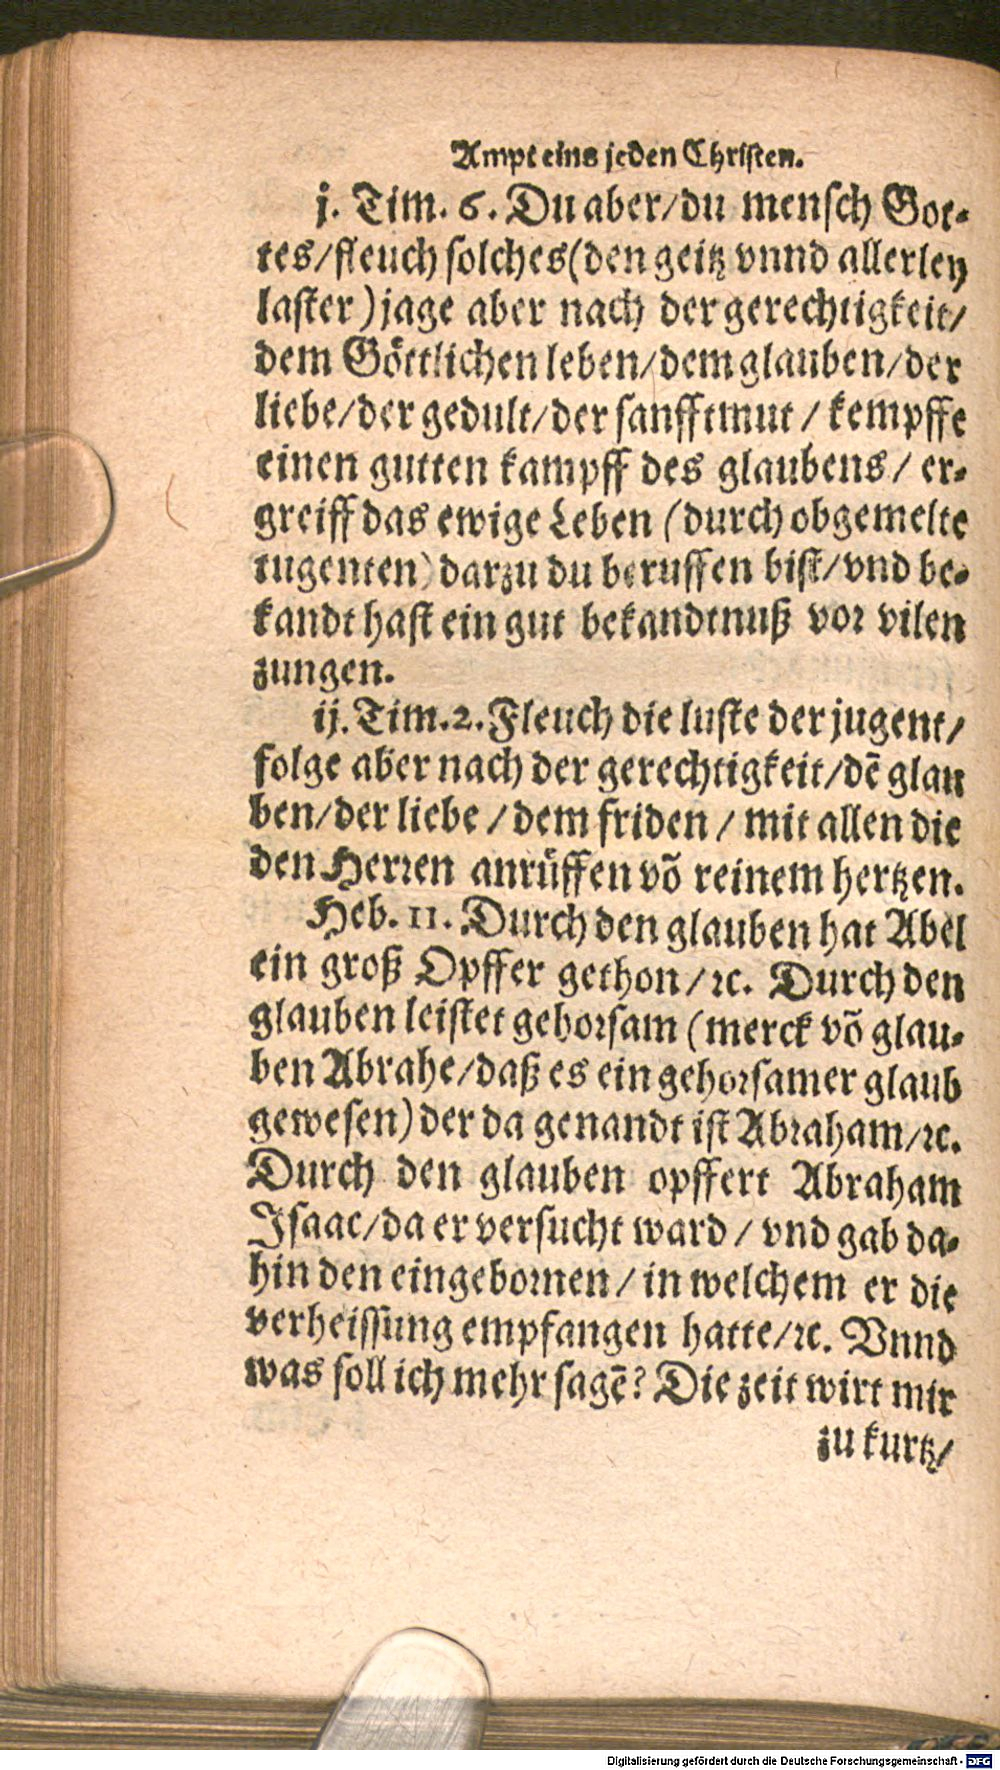 Ampt eins jeden Christen.
j. Tim. 6. Du aber/du mensch Got-
tes/fleuch solches(den geitz vnnd allerley
laster)jage aber nach der gerechtigkeit/
dem Göttlichen leben/dem glauben/der
liebe/der gedult/der sanfftmut / kempffe
einen gutten kampff des glaubens/ er-
greiff das ewige Leben (durch obgemelte
tugenten) darzu du beruffen bist/vnd be-
kandt hast ein gut bekandtnuß vor vilen
zungen.
ij. Tim. 2. Fleuch die luste der jugent/
folge aber nach der gerechtigkeit/dē glau
ben/der liebe / dem friden / mit allen die
den Herren anrůffen võ reinem hertzen.
Heb. 11. Durch den glauben hat Abel
ein groß Opffer gethon/ꝛc. Durch den
glauben leistet gehorsam (merck võ glau-
ben Abrahe/daß es ein gehorsamer glaub
gewesen) der da genandt ist Abraham/ꝛc.
Durch den glauben opffert Abraham
Isaac/da er versucht ward / vnd gab da-
hin den eingebornen / in welchem er die
verheissung empfangen hatte/ꝛc. Vnnd
was soll ich mehr sagē? Die zeit wirt mir
zu kurtz/
Digitalisierung gefördert durch die Deutsche Forschungsgemeinschaft - DFG